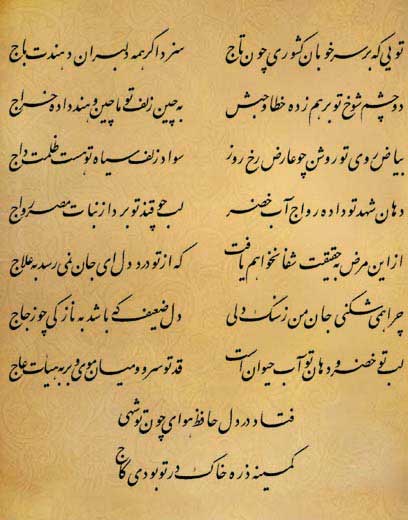 تویی که بر سر خوبان کشوری چون تاج سزد اگر همه دلبران دهندت باج
دو چشم شوخ تو برهم زده خطا و حبش به چین زلف تو ماچین و هند داده خراج
بیاض روی تو روشن چو عارض رخ روز سواد زلف سیاه تو هست ظلمت داج
دهان شهد تو داده رواج آب خضر لب چو قند تو برد از نبات مصر رواج
از این مرض به حقیقت شفا نخواهم یافت که از تو درد دل ای جان نمی‌رسد به علاج
چرا همی‌شکنی جان من ز سنگ دلی دل ضعیف که باشد به نازکی چو زجاج
لب تو خضر و دهان تو آب حیوان است قد تو سرو و میان موی و بر به هیأت عاج
فتاد در دل حافظ هوای چون تو شهی
کمینه ذره خاک در تو بودی کاج